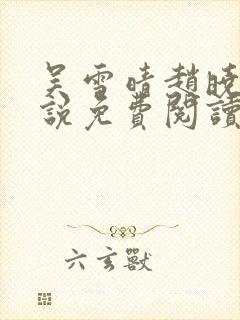 吴雪晴趙晓
說免費閱讀
六玄獸